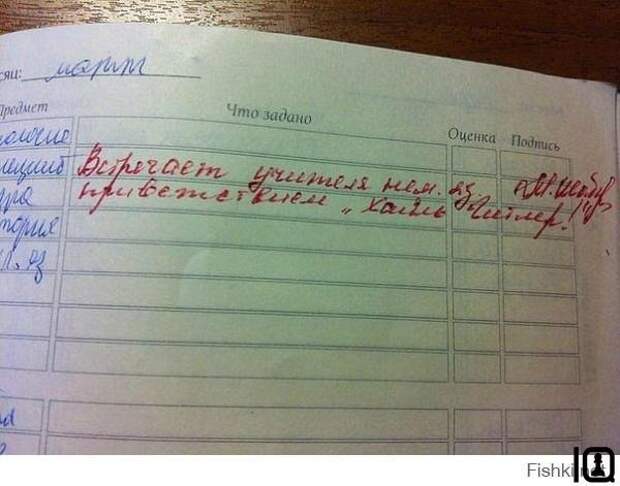 сяц: март
Предмет Что задано Оценка Подпись
ология
Встречает учителя нем. яз.
приветствием „Хайль Гитлер!"
тория
Fishki.net
IQ